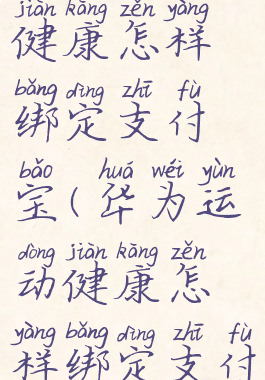 jiàn kāng zěn yàng
健康怎样
bǎng dìng zhī fù
绑定支付
bǎo huá wéi yùn
宝(华为运
dòng jiàn kāng zěn
动健康怎
yàng bǎng dìng zhī fù
样绑定支付